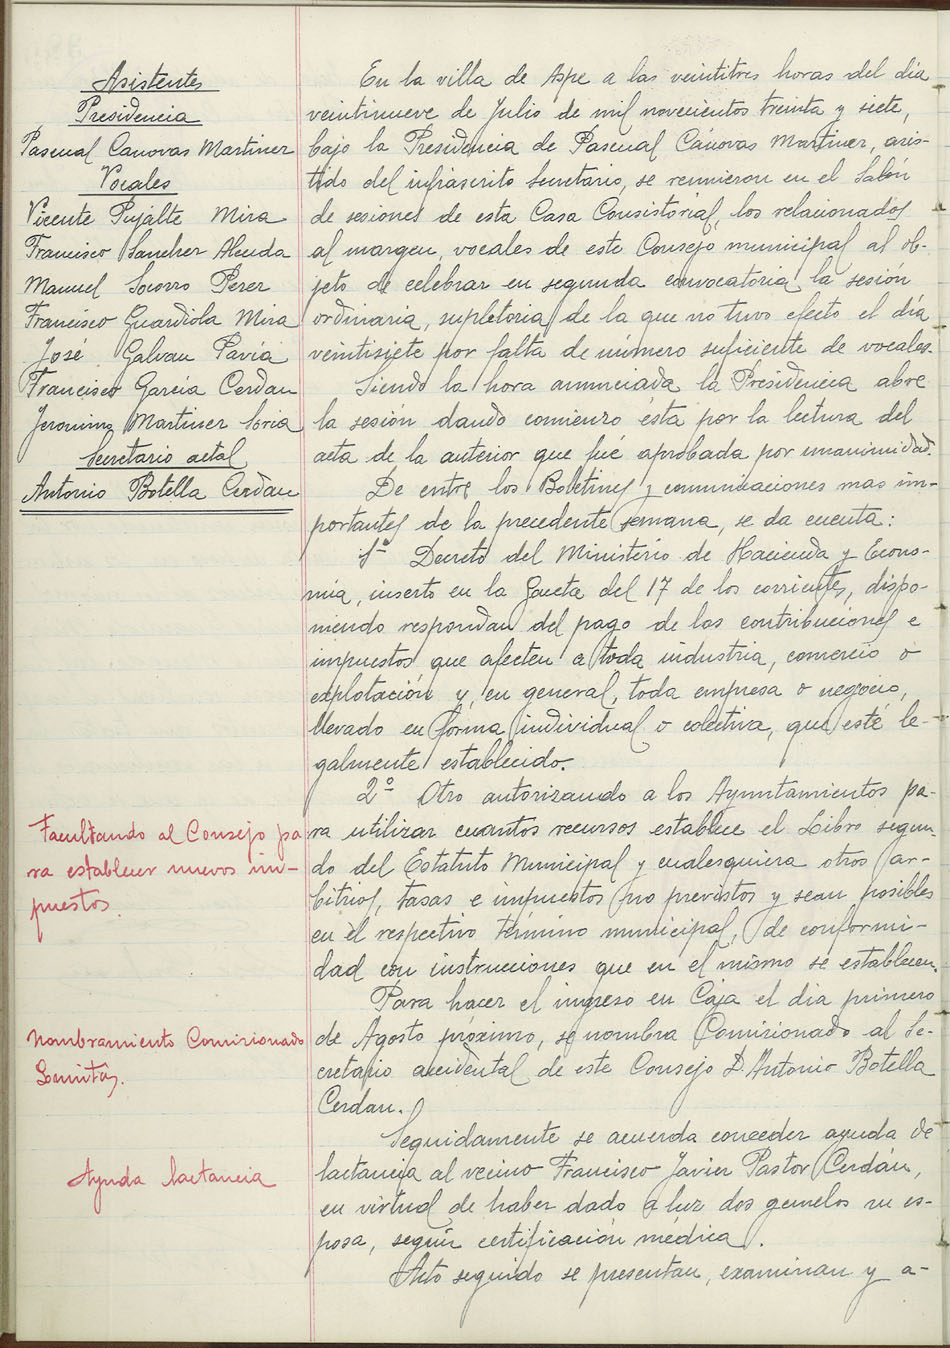 Asistentes
Presidencia
Pascual Cánovas Martinez
Vocales
Vicente Pujalte Mira
Francisco Sanchez Alenda
Manuel Socorro Perez
Francisco Guardiola Mira
José Galvan Pavía
Francisco García Cerdan
Jeronimo Martinez Soria
Secretario actal
Antonio Botella Cerdan
En la villa de Aspe a las veintitres horas del día
veintinueve de Julio de mil novecientos treinta y siete,
bajo la Presidencia de Pascual Cánovas Martinez, asis-
tido del infrascrito Secretario, se reunieron en el Salón
de sesiones de esta Casa Consistorial, los relacionados
al margen, vocales de este Consejo municipal al ob-
jeto de celebrar en segunda convocatoria la sesión
ordinaria, supletoria de la que no tuvo efecto el día
veintisiete por falta de número suficiente de vocales.
Siendo la hora anunciada la Presidencia abre
la sesión dando comienzo ésta por la lectura del
acta de la anterior que fué aprobada por unanimidad.
De entre los Boletines y comunicaciones mas im-
portantes de la precedente semana, se da cuenta:
1º Decreto del Ministerio de Hacienda y Econo-
mía, inserto en la Gaceta del 17 de los corrientes, dispo-
niendo respondan del pago de las contribuciones e
impuestos que afecten a toda industria, comercio o
explotación y, en general, toda empresa o negocio,
llevado en forma individual o colectiva, que esté le-
galmente establecido.
2º Otro autorizando a los Ayuntamientos pa-
ra utilizar cuantos recursos establece el Libro segun-
do del Estatuto Municipal y cualesquiera otros ar-
bitrios, tasas e impuestos no previstos y sean posibles
en el respectivo término municipal, de conformi-
dad con instrucciones que en el mismo se establecen.
Facultando al Consejo pa
ra establecer nuevos im-
puestos.
Para hacer el ingreso en Caja el dia primero
de Agosto próximo, se nombra Comisionado al Se-
cretario accidental de este Consejo D. Antonio Botella
Cerdan.
Nombramiento Comisionado
Seguidamente se acuerda conceder ayuda de
lactancia al vecino Francisco Javier Pastor Cerdán,
en virtud de haber dado a luz dos gemelos su es-
posa, según certificación médica.
Ayuda lactancia
Acto seguido se presentan, examinan y a-